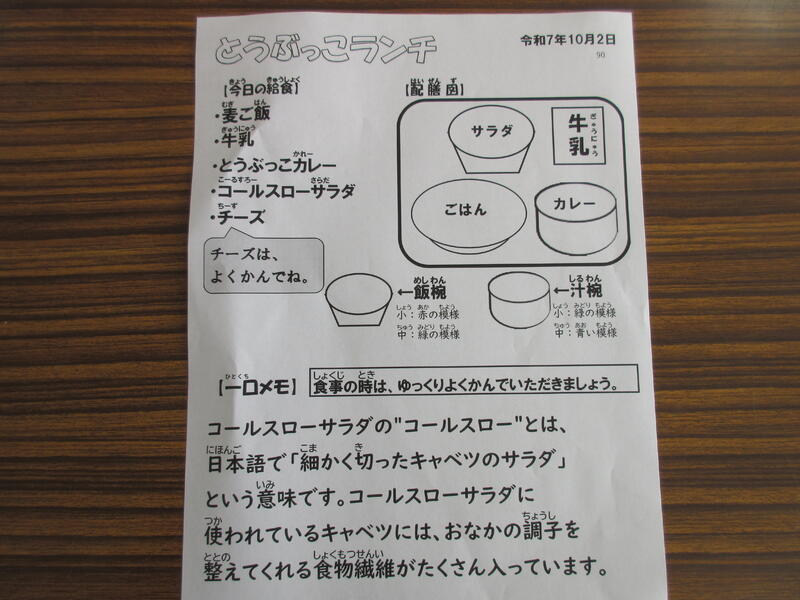 とうぶっこランチ
令和7年10月2日
90
【今日の給食】
・麦ご飯
・牛乳
・とうぶっこカレー
・コールスローサラダ
・チーズ
チーズは、
よくかんでね。
【配膳図】
サラダ
牛乳
ごはん
カレー
←飯椀
小：赤の模様
中：緑の模様
←汁椀
小：緑の模様
中：青い模様
【一口メモ】
食事の時は、ゆっくりよくかんでいただきましょう。
コールスローサラダの"コールスロー"とは、
日本語で「細かく切ったキャベツのサラダ」
という意味です。コールスローサラダに
使われているキャベツには、おなかの調子を
整えてくれる食物繊維がたくさん入っています。